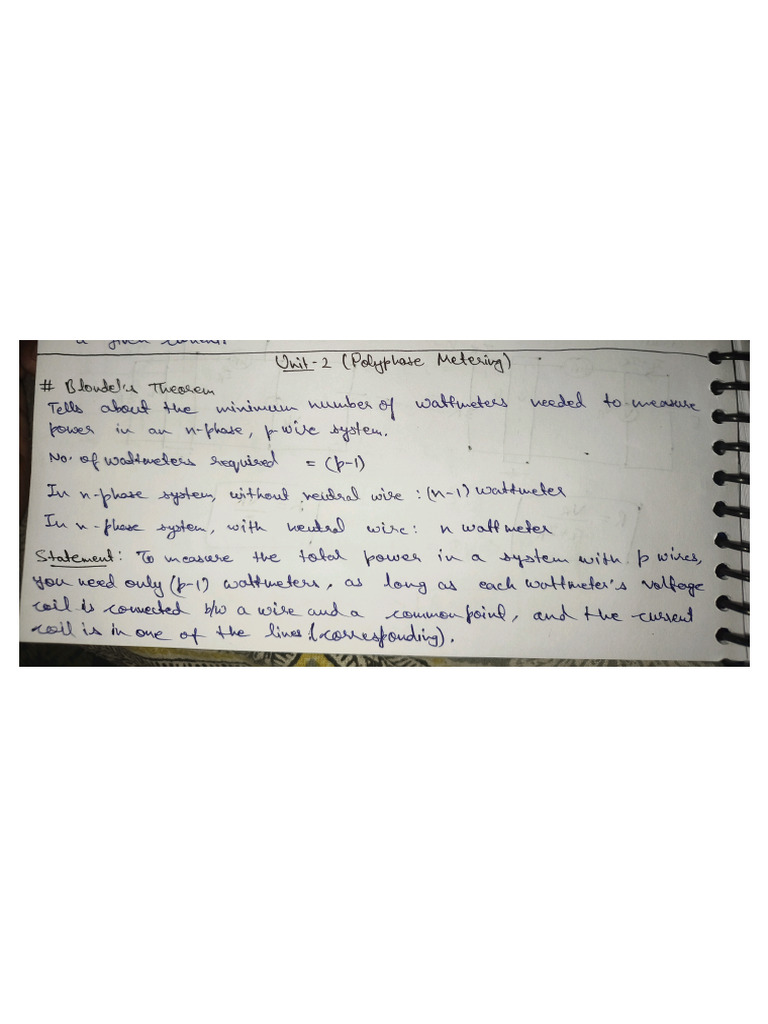 a given current.
Unit-2 (Polyphase Metering)
# Blondel's Theorem
Tells about the minimum number of wattmeters needed to measure
power in an n-phase, p-wire system.
No. of wattmeters required = (p-1)
In n-phase system, without neutral wire : (n-1) wattmeter
In n-phase system, with neutral wire: n wattmeter
Statement: To measure the total power in a system with p wires,
you need only (p-1) wattmeters, as long as each wattmeter's voltage
coil is connected b/w a wire and a common point, and the current
coil is in one of the lines (corresponding).